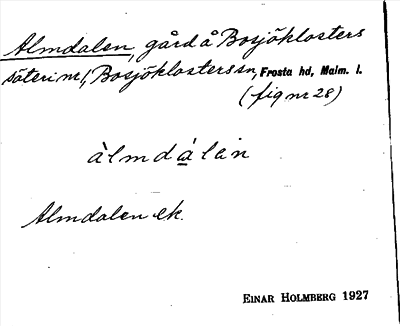 Almdalen, gård å Bosjöklosters
säteri nr 1, Bosjöklosters sn, Frosta hd, Malm. l.
(fig nr 28)
àlmdálen
Almdalen ek.
EINAR HOLMBERG 1927